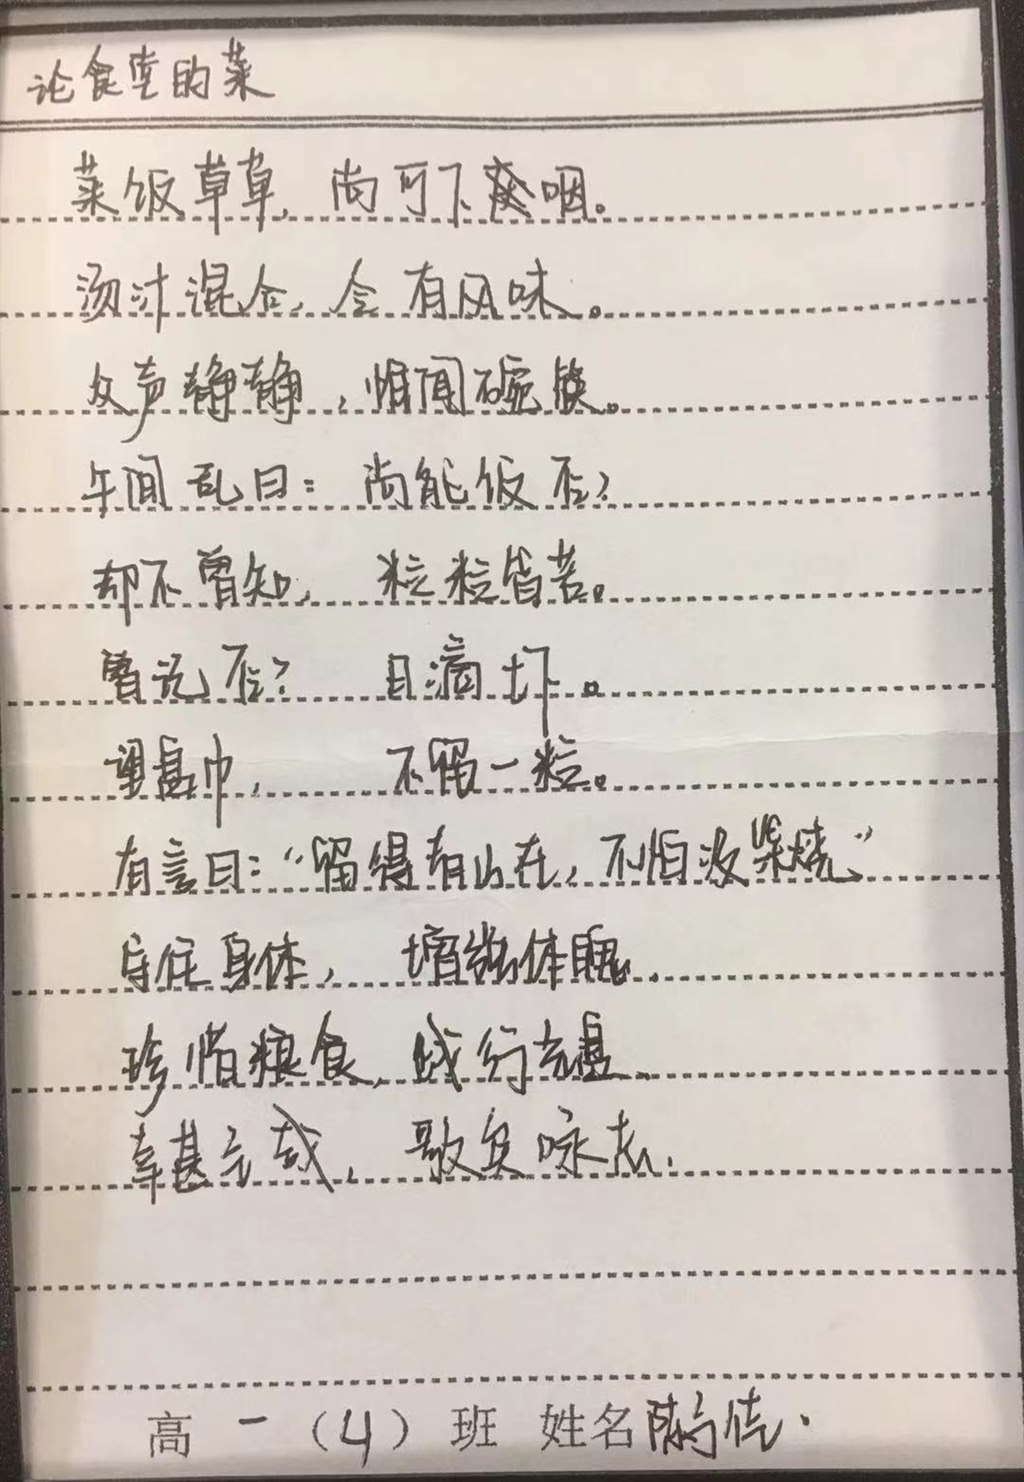 论食堂的菜
菜饭草草,尚可下咽。
汤汁混合,会有风味。
众声静静,惟闻碗筷。
午间乱曰:尚能饭否?
却不曾知,粒粒皆苦。
曾记否?日滴土下。
望盘中,不留一粒。
有言曰:“留得青山在,不怕没柴烧”
守住身体,增强体魄.
珍惜粮食,践行光盘.
幸甚至哉,歌以咏志.
高一(4)班 姓名陈